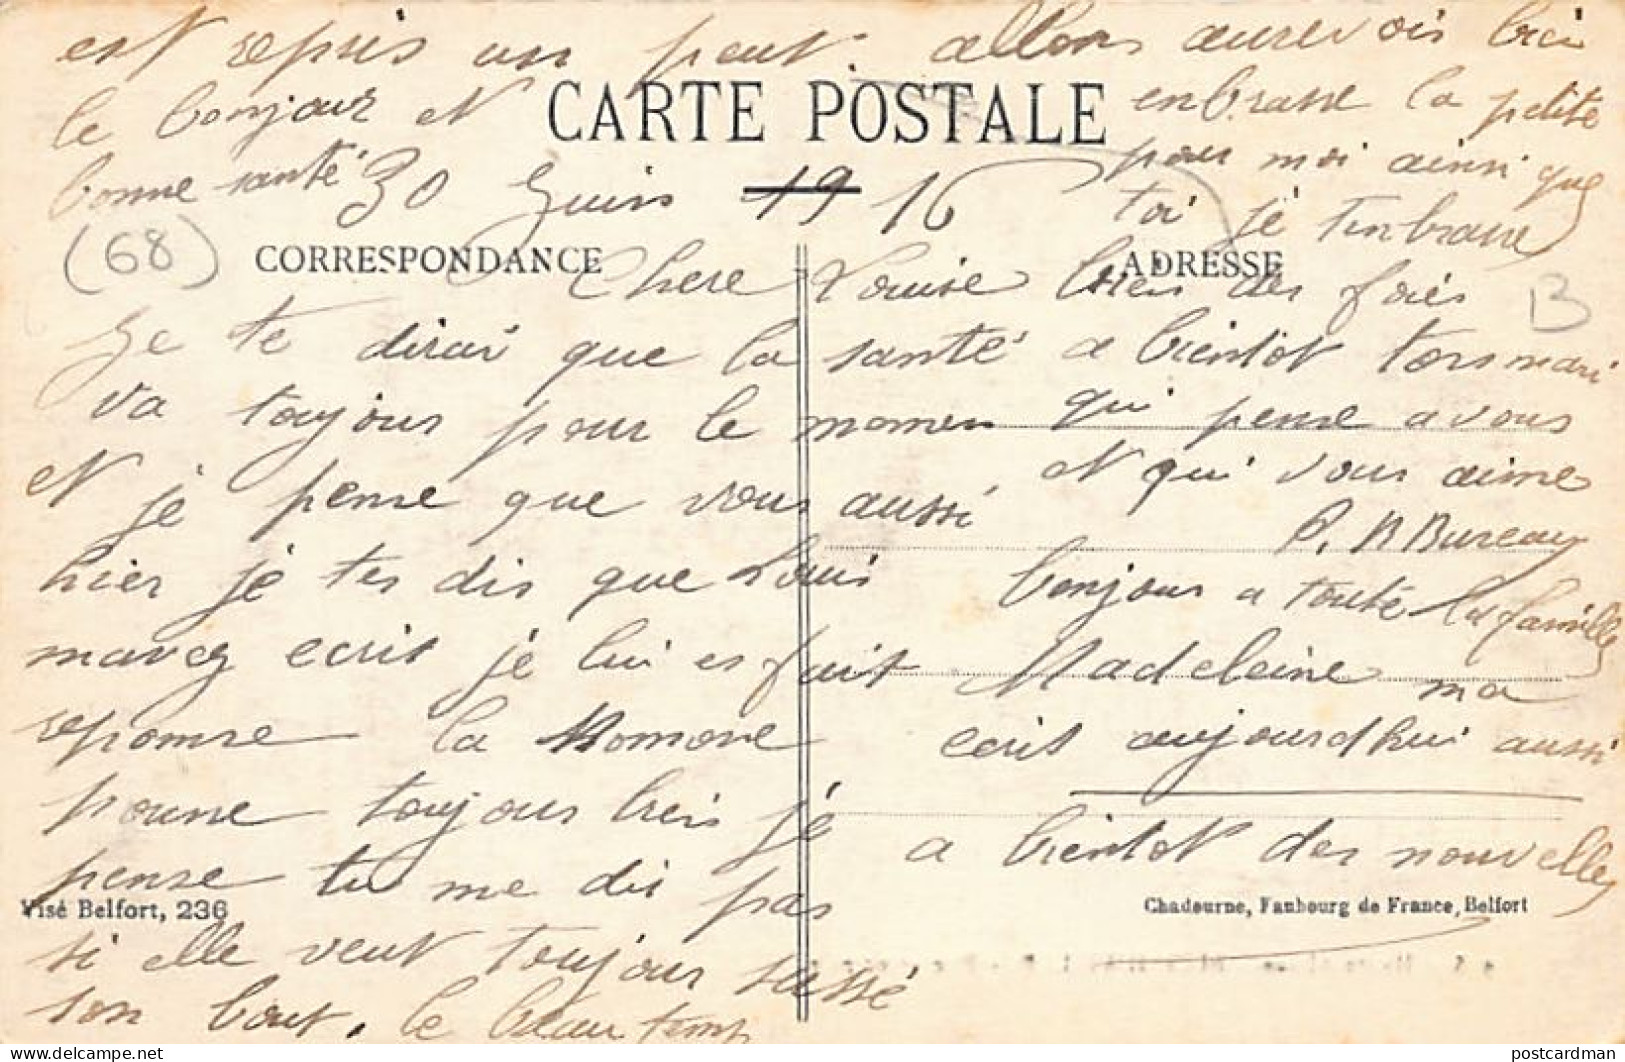 30 Juin 1916
CARTE POSTALE
CORRESPONDANCE
ADRESSE
(68)
B
Chere Louise
Je te dirai que la santé
va toujours pour le momen
et je pense que vous aussi
hier je tes dis que Louis
marcq ecrit je lui es fait
reponse la
toujours bien je
pense tu me dis pas
si elle veut toujour sussé
son bout. le beau temp
est repris un peut. allons aurevois bien
le bonjour et
bonne santé
enbrasse la petite
pour moi ainsi que
toi je tenbrasse
bien des fois
a bientot tors mari
qui pense a vous
et qui vous aime
P. B Bureau
bonjour a touté la famille
Madeleine ma
ecrit aujourdhui aussi
a bientot des nouvelles
Visé Belfort, 236
Chadourne, Faubourg de France, Belfort
postcardman